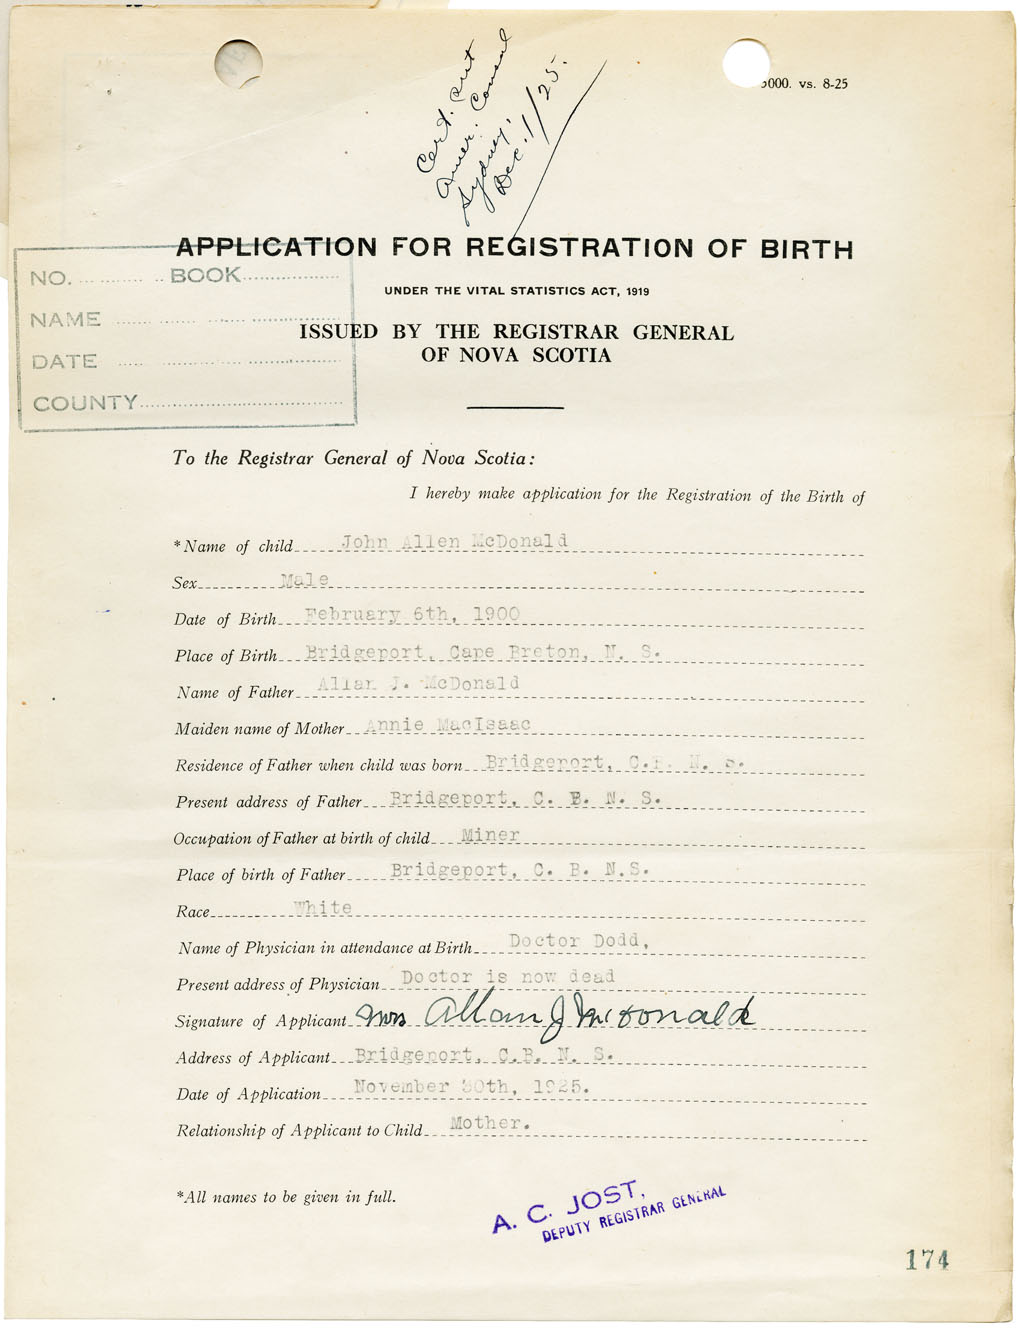 Cert. out
Amer. Consul
Sydney,
Dec. 1/25.
000. vs. 8-25
APPLICATION FOR REGISTRATION OF BIRTH
UNDER THE VITAL STATISTICS ACT, 1919
ISSUED BY THE REGISTRAR GENERAL
OF NOVA SCOTIA
NO. BOOK
NAME
DATE
COUNTY
To the Registrar General of Nova Scotia:
I hereby make application for the Registration of the Birth of
*Name of child John Allen McDonald
Sex Male
Date of Birth February 6th, 1900
Place of Birth Bridgeport, Cape Breton, N. S.
Name of Father Allan J. McDonald
Maiden name of Mother Annie MacIsaac
Residence of Father when child was born Bridgeport, C.B. N. S.
Present address of Father Bridgeport, C. B. N. S.
Occupation of Father at birth of child Miner
Place of birth of Father Bridgeport, C. B. N.S.
Race White
Name of Physician in attendance at Birth Doctor Dodd,
Present address of Physician Doctor is now dead
Signature of Applicant Mrs Allan J McDonald
Address of Applicant Bridgeport, C.B. N. S.
Date of Application November 30th, 1925.
Relationship of Applicant to Child Mother.
*All names to be given in full.
A. C. JOST,
DEPUTY REGISTRAR GENERAL
174